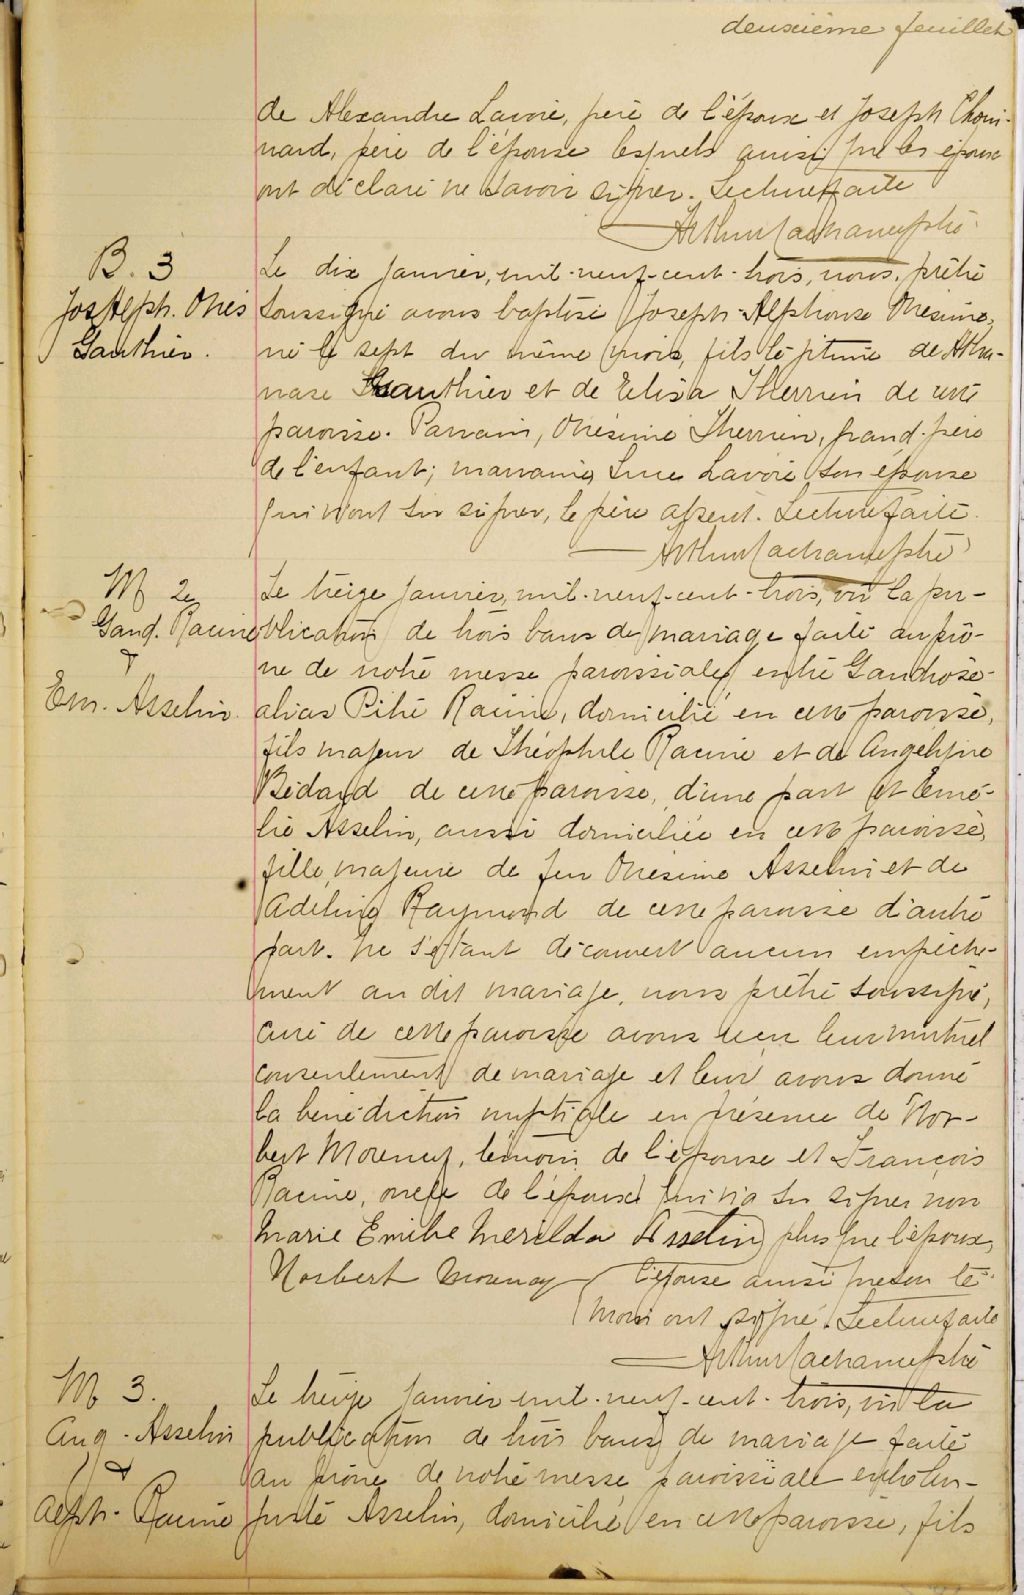 deuxième feuillet
de Alexandre Lavoie, père de l'époux et Joseph Choui-
nard, père de l'épouse lesquels ainsi que les époux
ont déclaré ne savoir signer. Lecture faite
Arthur Lachance Ptre
B. 3
Jos Alph. Onés
Gauthier.
Le dix janvier, mil-neuf-cent-trois, nous, prêtre
soussigné avons baptisé Joseph-Alphonse Onésime,
né le sept du même mois, fils légitime de Atha-
nase Gauthier et de Eliza Therrien de cette
paroisse. Parrain, Onésime Therrien, grand-père
de l'enfant; marraine, Luce Lavoie son épouse
qui n'ont su signer, le père absent. Lecture faite.
Arthur Lachance Ptre
M 2
Gaud. Racine
&
Em. Asselin.
Le treize janvier, mil-neuf-cent-trois, vu la pu-
blication de trois bans de mariage faite au prô-
ne de notre messe paroissiale, entre Gaudiose-
alias Pitre Racine, domicilié en cette paroisse,
fils majeur de Théophile Racine et de Angélique
Bédard de cette paroisse, d'une part et Emé-
lie Asselin, aussi domiciliée en cette paroisse,
fille majeure de feu Onésime Asselin et de
Adeline Raymond de cette paroisse d'autre
part. Ne s'étant découvert aucun empêche-
ment au dit mariage, nous prêtre soussigné,
curé de cette paroisse avons reçu leur mutuel
consentement de mariage et leur avons donné
la bénédiction nuptiale en présence de Nor-
bert Morency, témoin de l'épouse et François
Racine, oncle de l'époux qui n'a su signer non
Marie Emilie Merilda Asselin plus que l'époux,
Norbert Morency l'épouse ainsi que son té-
moin ont signé. Lecture faite
Arthur Lachance Ptre
M 3.
Aug. Asselin
&
Alph. Racine
Le treize janvier mil-neuf-cent-trois, vu la
publication de trois bans de mariage faite
au prône de notre messe paroissiale entre Au-
guste Asselin, domicilié en cette paroisse, fils